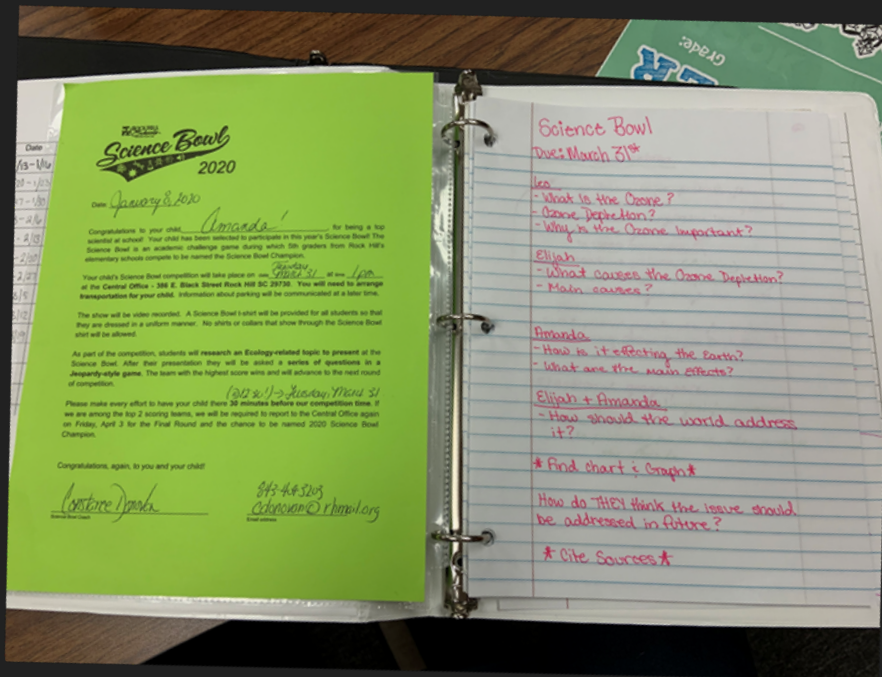 Grade:
ER
Date
/13-1/16
-1/23
-1/30
-2/6
-2/13
-2/20
-2/27
ROCK HILL
Schools
Science Bowl
2020
Date January 8, 2020
Congratulations to your child, Amanda! for being a top
scientist at school! Your child has been selected to participate in this year's Science Bowl! The
Science Bowl is an academic challenge game during which 5th graders from Rock Hill's
elementary schools compete to be named the Science Bowl Champion.
Your child's Science Bowl competition will take place on Tuesday March 31 at 1pm
at the Central Office - 386 E. Black Street Rock Hill SC 29730. You will need to arrange
transportation for your child. Information about parking will be communicated at a later time.
The show will be video recorded. A Science Bowl t-shirt will be provided for all students so that
they are dressed in a uniform manner. No shirts or collars that show through the Science Bowl
shirt will be allowed.
As part of the competition, students will research an Ecology-related topic to present at the
Science Bowl. After their presentation they will be asked a series of questions in a
Jeopardy-style game. The team with the highest score wins and will advance to the next round
of competition.
(@12:30!) → Tuesday, March 31
Please make every effort to have your child there 30 minutes before our competition time. If
we are among the top 2 scoring teams, we will be required to report to the Central Office again
on Friday, April 3 for the Final Round and the chance to be named 2020 Science Bowl
Champion.
Congratulations, again, to you and your child!
Constance Donovan
Science Bowl Coach
cdonovan@rhmail.org
Email address
Science Bowl
Due: March 31st
Leo
- What is the Ozone?
- Ozone Depletion?
- Why is the Ozone Important?
Elijah
- What causes the Ozone Depletion?
- Main causes?
Amanda
- How is it effecting the Earth?
- What are the main effects?
Elijah + Amanda
- How should the world address
it?
* Find chart & Graph *
How do THEY think the issue should
be addressed in future?
* Cite Sources *